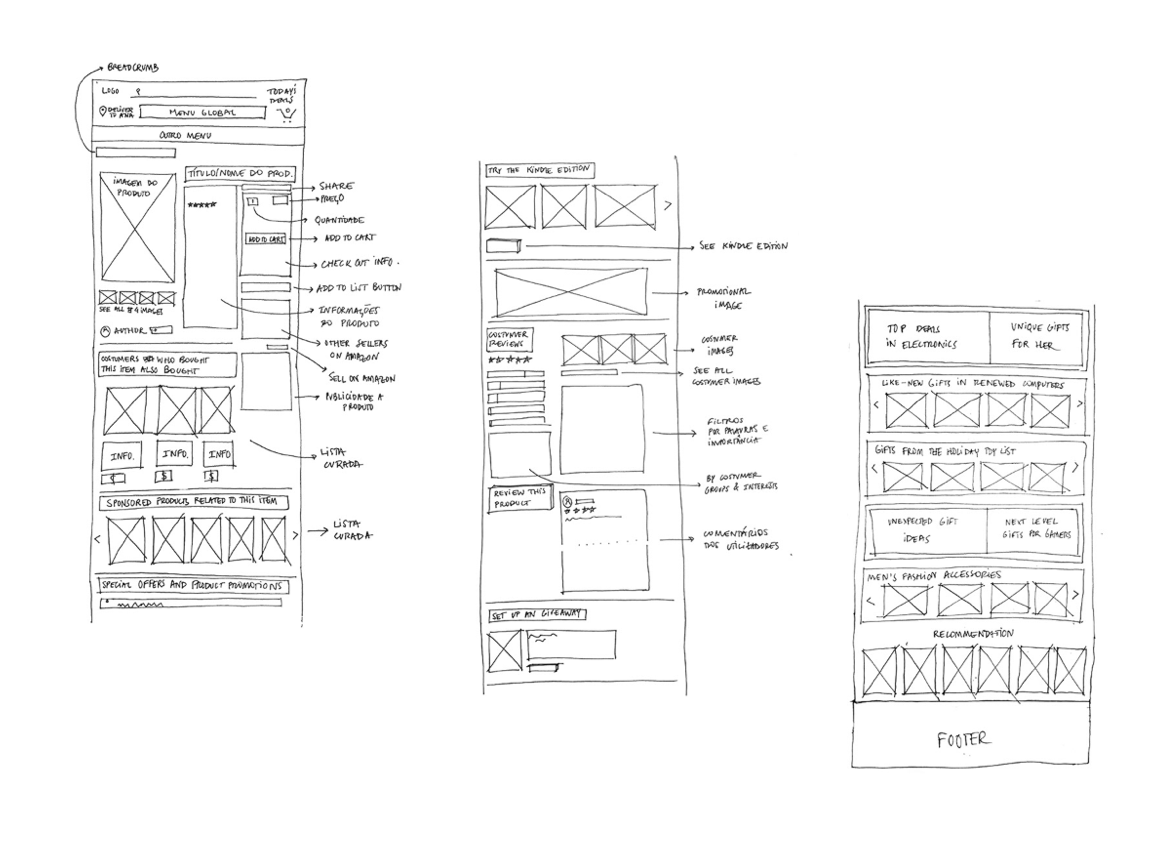 BREADCRUMB
LOGO
TODAY'S
DEALS
DELIVER
TO ANA
MENU GLOBAL
OUTRO MENU
TÍTULO/NOME DO PROD.
IMAGEM DO
PRODUTO
SHARE
PREÇO
QUANTIDADE
ADD TO CART
ADD TO CART
CHECK OUT INFO.
ADD TO LIST BUTTON
SEE ALL 4 IMAGES
INFORMAÇÕES
DO PRODUTO
AUTHOR
OTHER SELLERS
ON AMAZON
COSTUMERS WHO BOUGHT
THIS ITEM ALSO BOUGHT
SELL ON AMAZON
PUBLICIDADE A
PRODUTO
INFO.
INFO.
INFO
$
$
LISTA
CURADA
SPONSORED PRODUCTS RELATED TO THIS ITEM
LISTA
CURADA
SPECIAL OFFERS AND PRODUCT PROMOTIONS
TRY THE KINDLE EDITION
SEE KINDLE EDITION
PROMOTIONAL
IMAGE
COSTUMER
REVIEWS
COSTUMER
IMAGES
SEE ALL
COSTUMER IMAGES
FILTROS
POR PALAVRAS E
IMPORTÂNCIA
BY COSTUMER
GROUPS & INTERESTS
REVIEW THIS
PRODUCT
COMENTÁRIOS
DOS UTILIZADORES
SET UP AN GIVEAWAY
TOP DEALS
IN ELECTRONICS
UNIQUE GIFTS
FOR HER
LIKE-NEW GIFTS IN RENEWED COMPUTERS
GIFTS FROM THE HOLIDAY TOY LIST
UNEXPECTED GIFT
IDEAS
NEXT LEVEL
GIFTS FOR GAMERS
MEN'S FASHION ACCESSORIES
RECOMMENDATION
FOOTER